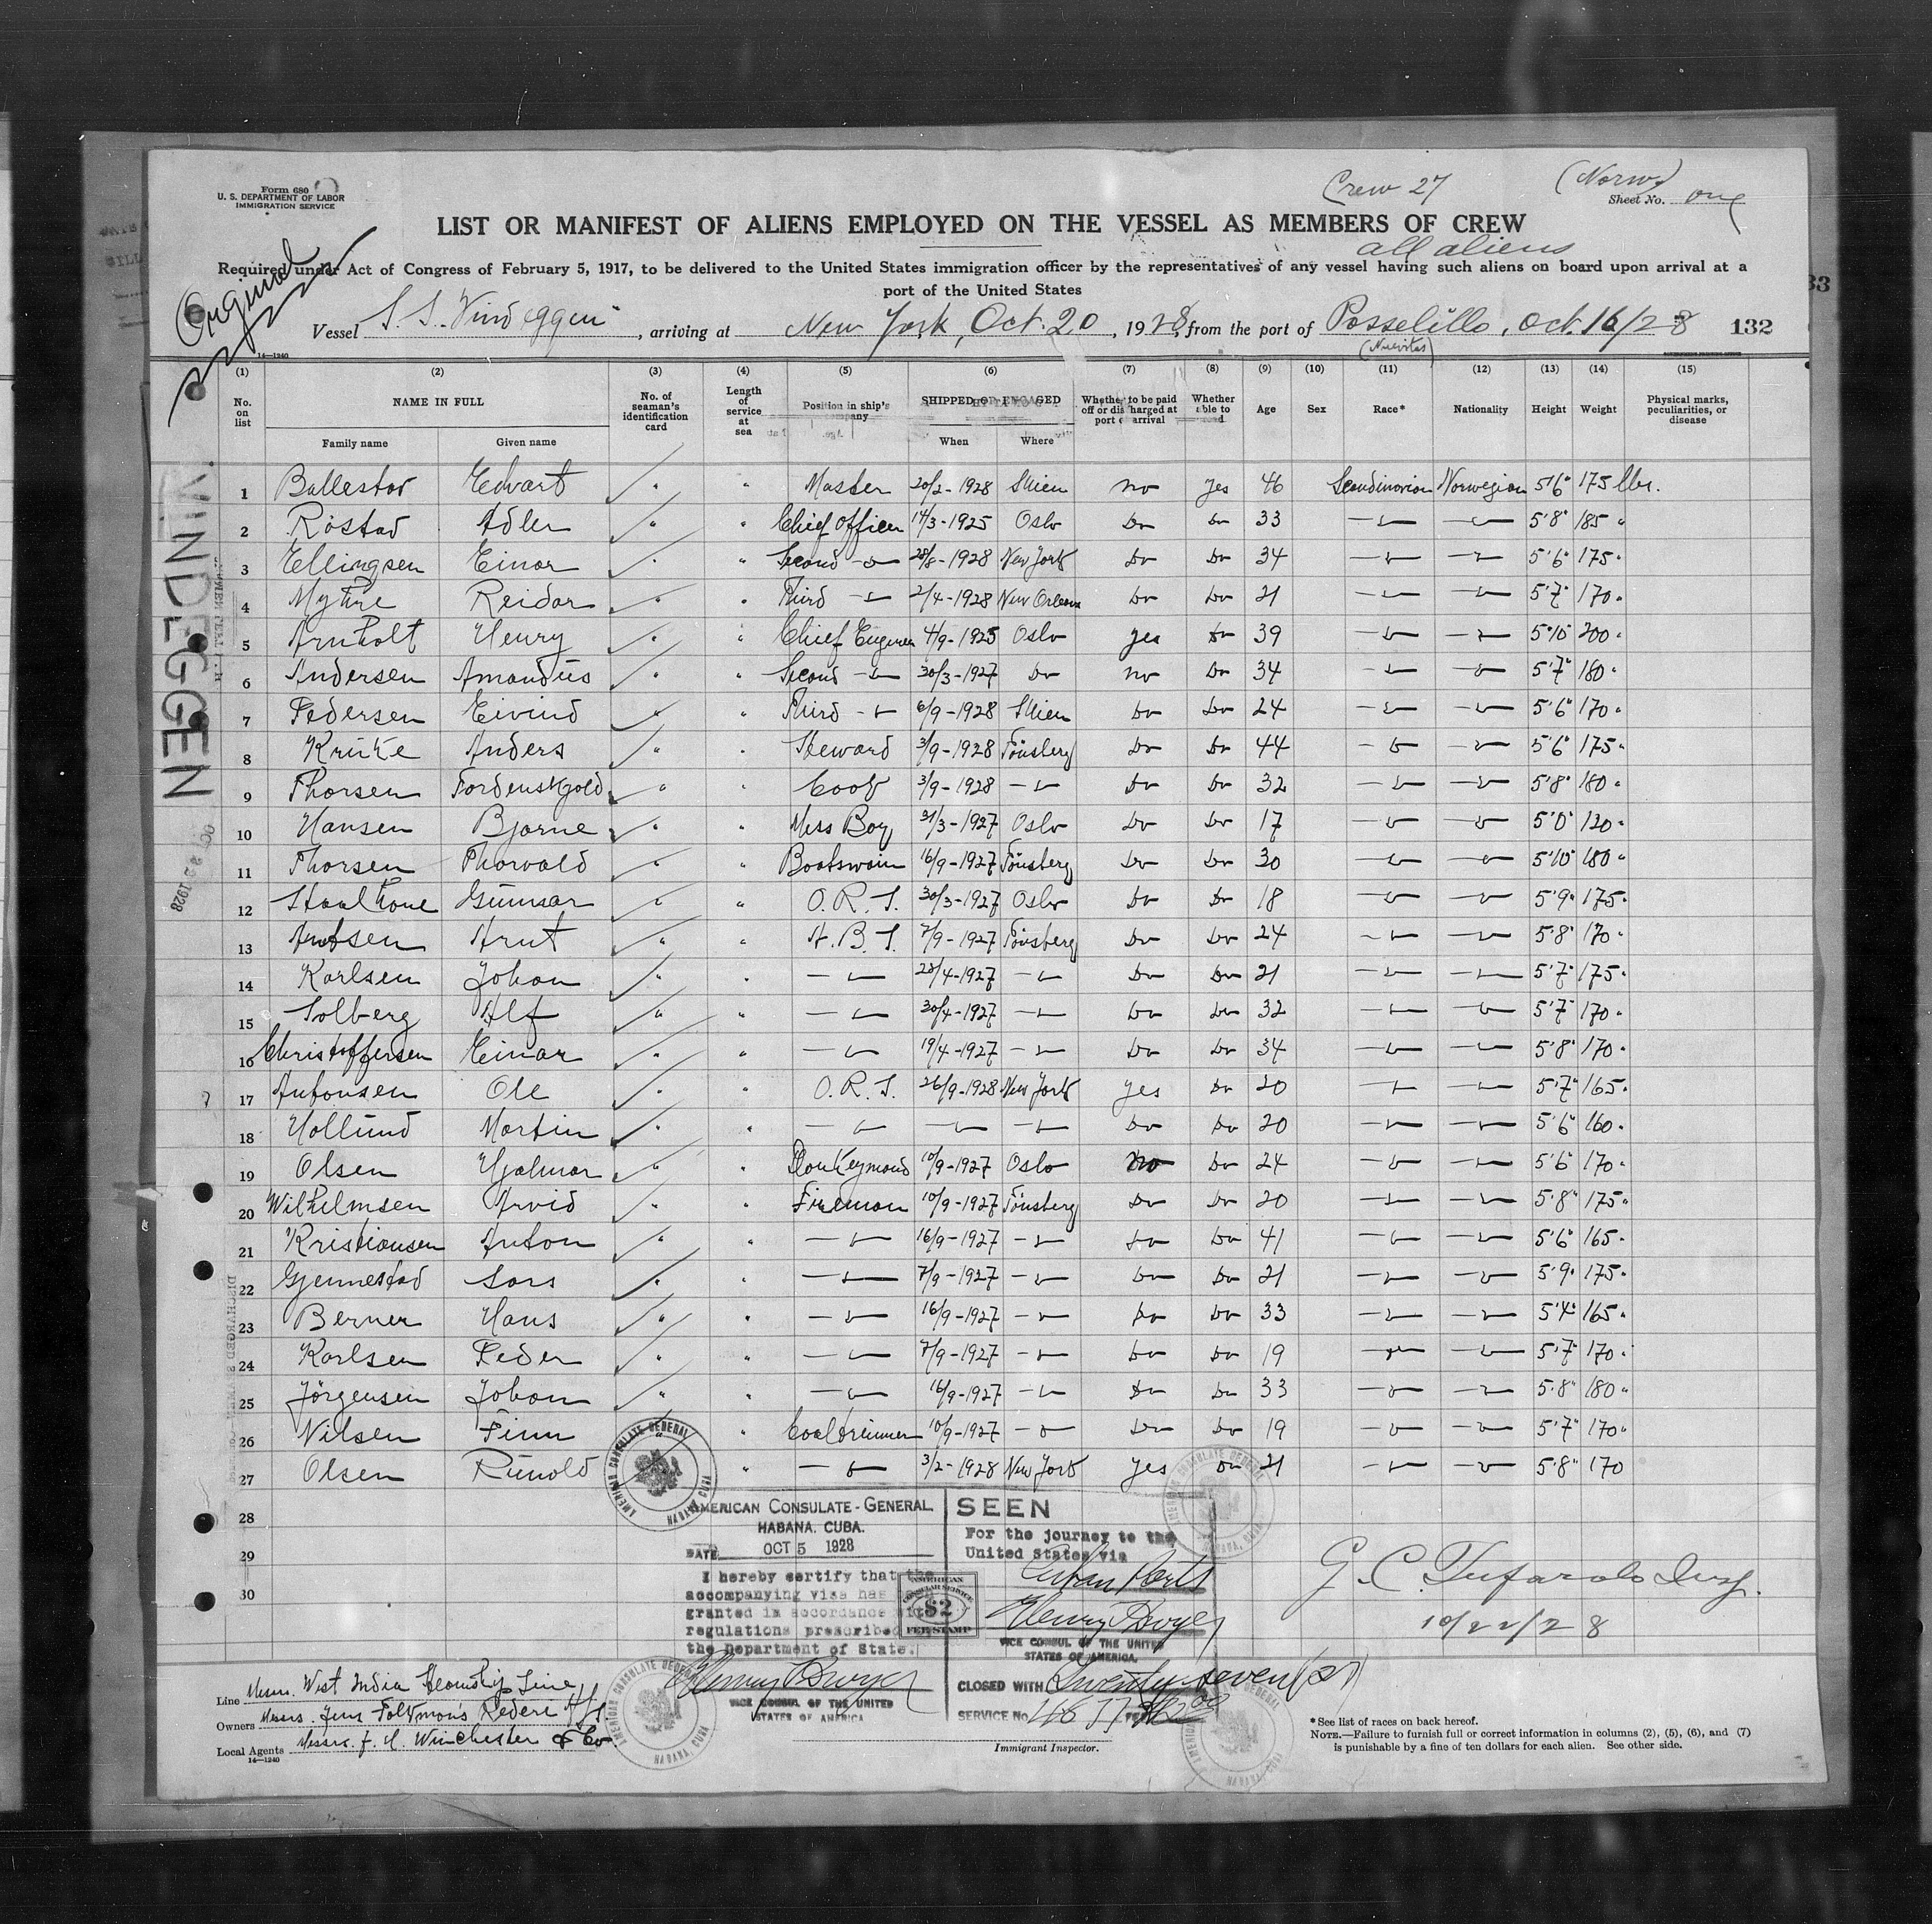 Form 680
U. S. DEPARTMENT OF LABOR
IMMIGRATION SERVICE
Crew 27
(Norw.)
Sheet No. one
LIST OR MANIFEST OF ALIENS EMPLOYED ON THE VESSEL AS MEMBERS OF CREW
all aliens
Required under Act of Congress of February 5, 1917, to be delivered to the United States immigration officer by the representatives of any vessel having such aliens on board upon arrival at a
port of the United States
Original
Vessel S. S. Vindeggen, arriving at New York, Oct. 20, 1928, from the port of Posselillo, Oct. 16/28 132
(Nuevitas)
14—1240
(1) (2) (3) (4) (5) (6) (7) (8) (9) (10) (11) (12) (13) (14) (15)
No. on list NAME IN FULL No. of seaman's identification card Length of service at sea Position in ship's company SHIPPED OR ENGAGED Whether to be paid off or discharged at port of arrival Whether able to read Age Sex Race* Nationality Height Weight Physical marks, peculiarities, or disease
Family name Given name When Where
VINDEGGEN
1 Ballestad Edvart " Master 20/2-1928 Skien no yes 46 Scandinavian Norwegian 5'6" 175 lbs.
2 Röstad Adler " " Chief Officer 14/3-1925 Oslo Do Do 33 5'8" 185 "
3 Ellingsen Einar " " Second 28/8-1928 New York Do Do 34 5'6" 175 "
4 Myhre Reidar " " Third 2/4-1928 New Orleans Do Do 21 5'7" 170 "
5 Arnholt Henry " " Chief Engineer 4/9-1925 Oslo yes Do 39 5'10" 200 "
6 Andersen Amandus " " Second 30/3-1927 Do no Do 34 5'7" 160 "
7 Pedersen Eivind " " Third 6/9-1928 Skien Do Do 24 5'6" 170 "
8 Krüke Anders " " Steward 3/9-1928 Tönsberg Do Do 44 5'6" 175 "
9 Thorsen Tordenskjold " " Cook 3/9-1928 Do Do 32 5'8" 180 "
10 Hansen Bjarne " " Mess Boy 31/3-1927 Oslo Do Do 17 5'0" 120 "
11 Thorsen Thorvald " " Boatswain 16/9-1927 Tönsberg Do Do 30 5'10" 180 "
12 Gunnar " " O. R. S. 30/3-1927 Oslo Do Do 18 5'9" 175 "
13 Knut " " A. B. S. 7/9-1927 Tönsberg Do Do 24 5'8" 170 "
14 Karlsen Johan " " 28/4-1927 Do Do 21 5'7" 175 "
15 Solberg Alf " " 30/4-1927 Do Do 32 5'7" 170 "
16 Christoffersen Einar " " 19/4-1927 Do Do 34 5'8" 170 "
17 Antonsen Ole " " O. R. S. 26/9-1928 New York yes Do 20 5'7" 165 "
18 Hollund Martin " " Do Do 20 5'6" 160 "
19 Olsen Hjalmar " " Donkeymand 10/9-1927 Oslo no Do 24 5'6" 170 "
20 Wilhelmsen Arvid " " Fireman 10/9-1927 Tönsberg Do Do 20 5'8" 175 "
21 Kristiansen Anton " " 16/9-1927 Do Do 41 5'6" 165 "
22 Gjennestad Lars " " 7/9-1927 Do Do 21 5'9" 175 "
23 Berner Hans " " 16/9-1927 Do Do 33 5'4" 165 "
24 Karlsen Peder " " 7/9-1927 Do Do 19 5'7" 170 "
25 Jörgensen Johan " " 16/9-1927 Do Do 33 5'8" 180 "
26 Nilsen Finn " " Coaltrimmer 10/9-1927 Do Do 19 5'7" 170 "
27 Olsen Runold " 3/2-1928 New York yes Do 21 5'8" 170
28
29
30
AMERICAN CONSULATE GENERAL HABANA, CUBA
AMERICAN CONSULATE-GENERAL.
HABANA, CUBA.
DATE OCT 5 1928
I hereby certify that the
accompanying visa has been
granted in accordance with
regulations prescribed
the Department of State.
AMERICAN CONSULAR SERVICE $2 FEE STAMP
Henry Dwyer
VICE CONSUL OF THE UNITED
STATES OF AMERICA
SEEN
For the journey to the
United States via
Cuban Ports
Henry Dwyer
VICE CONSUL OF THE UNITED
STATES OF AMERICA.
CLOSED WITH Twenty seven (27)
SERVICE No.
G. C. Tufarolo Insp.
10/22/28
Immigrant Inspector.
Line Messrs. West India Steamship Line
Owners Messrs. Rederi A/S.
Local Agents Messrs. J. H. Winchester & Co.
14—1240
*See list of races on back hereof.
NOTE.—Failure to furnish full or correct information in columns (2), (5), (6), and (7)
is punishable by a fine of ten dollars for each alien. See other side.